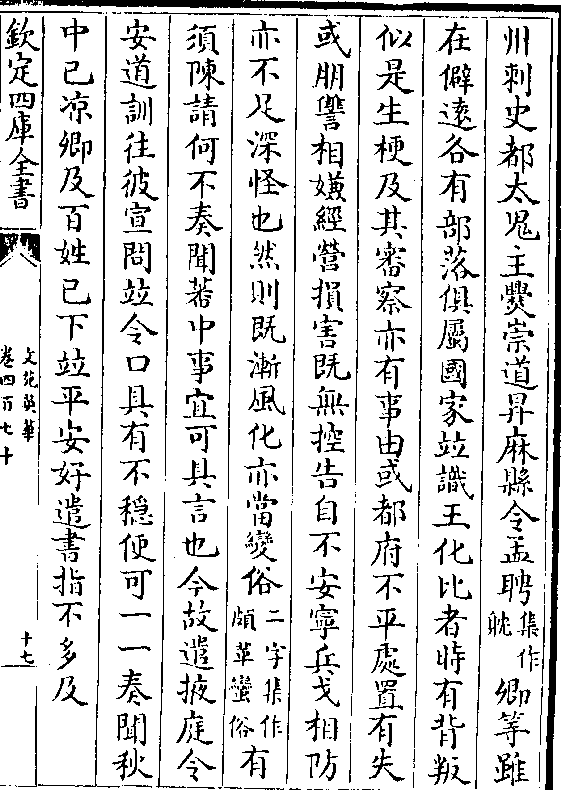 州刺史都太鬼主爨崇道昇麻縣令孟聘集作耽卿等雖
在僻逺各有部落俱屬國家竝識王化比者時有背叛
似是生梗及其審察亦有事由或都府不平處置有失
或朋讐相嫌經營損害既無控告自不安寧兵戈相防
亦不足深怪也然則既漸風化亦當變俗二字集作頗革蠻俗有
須陳請何不奏聞蕃中事宜可具言也今故遣掖庭令
安道訓往彼宣問竝令口具有不穩便可一一奏聞秋
中已凉卿及百姓已下竝平安好遣書指不多及
欽定四庫全書
文苑英華
卷四百七十
十七